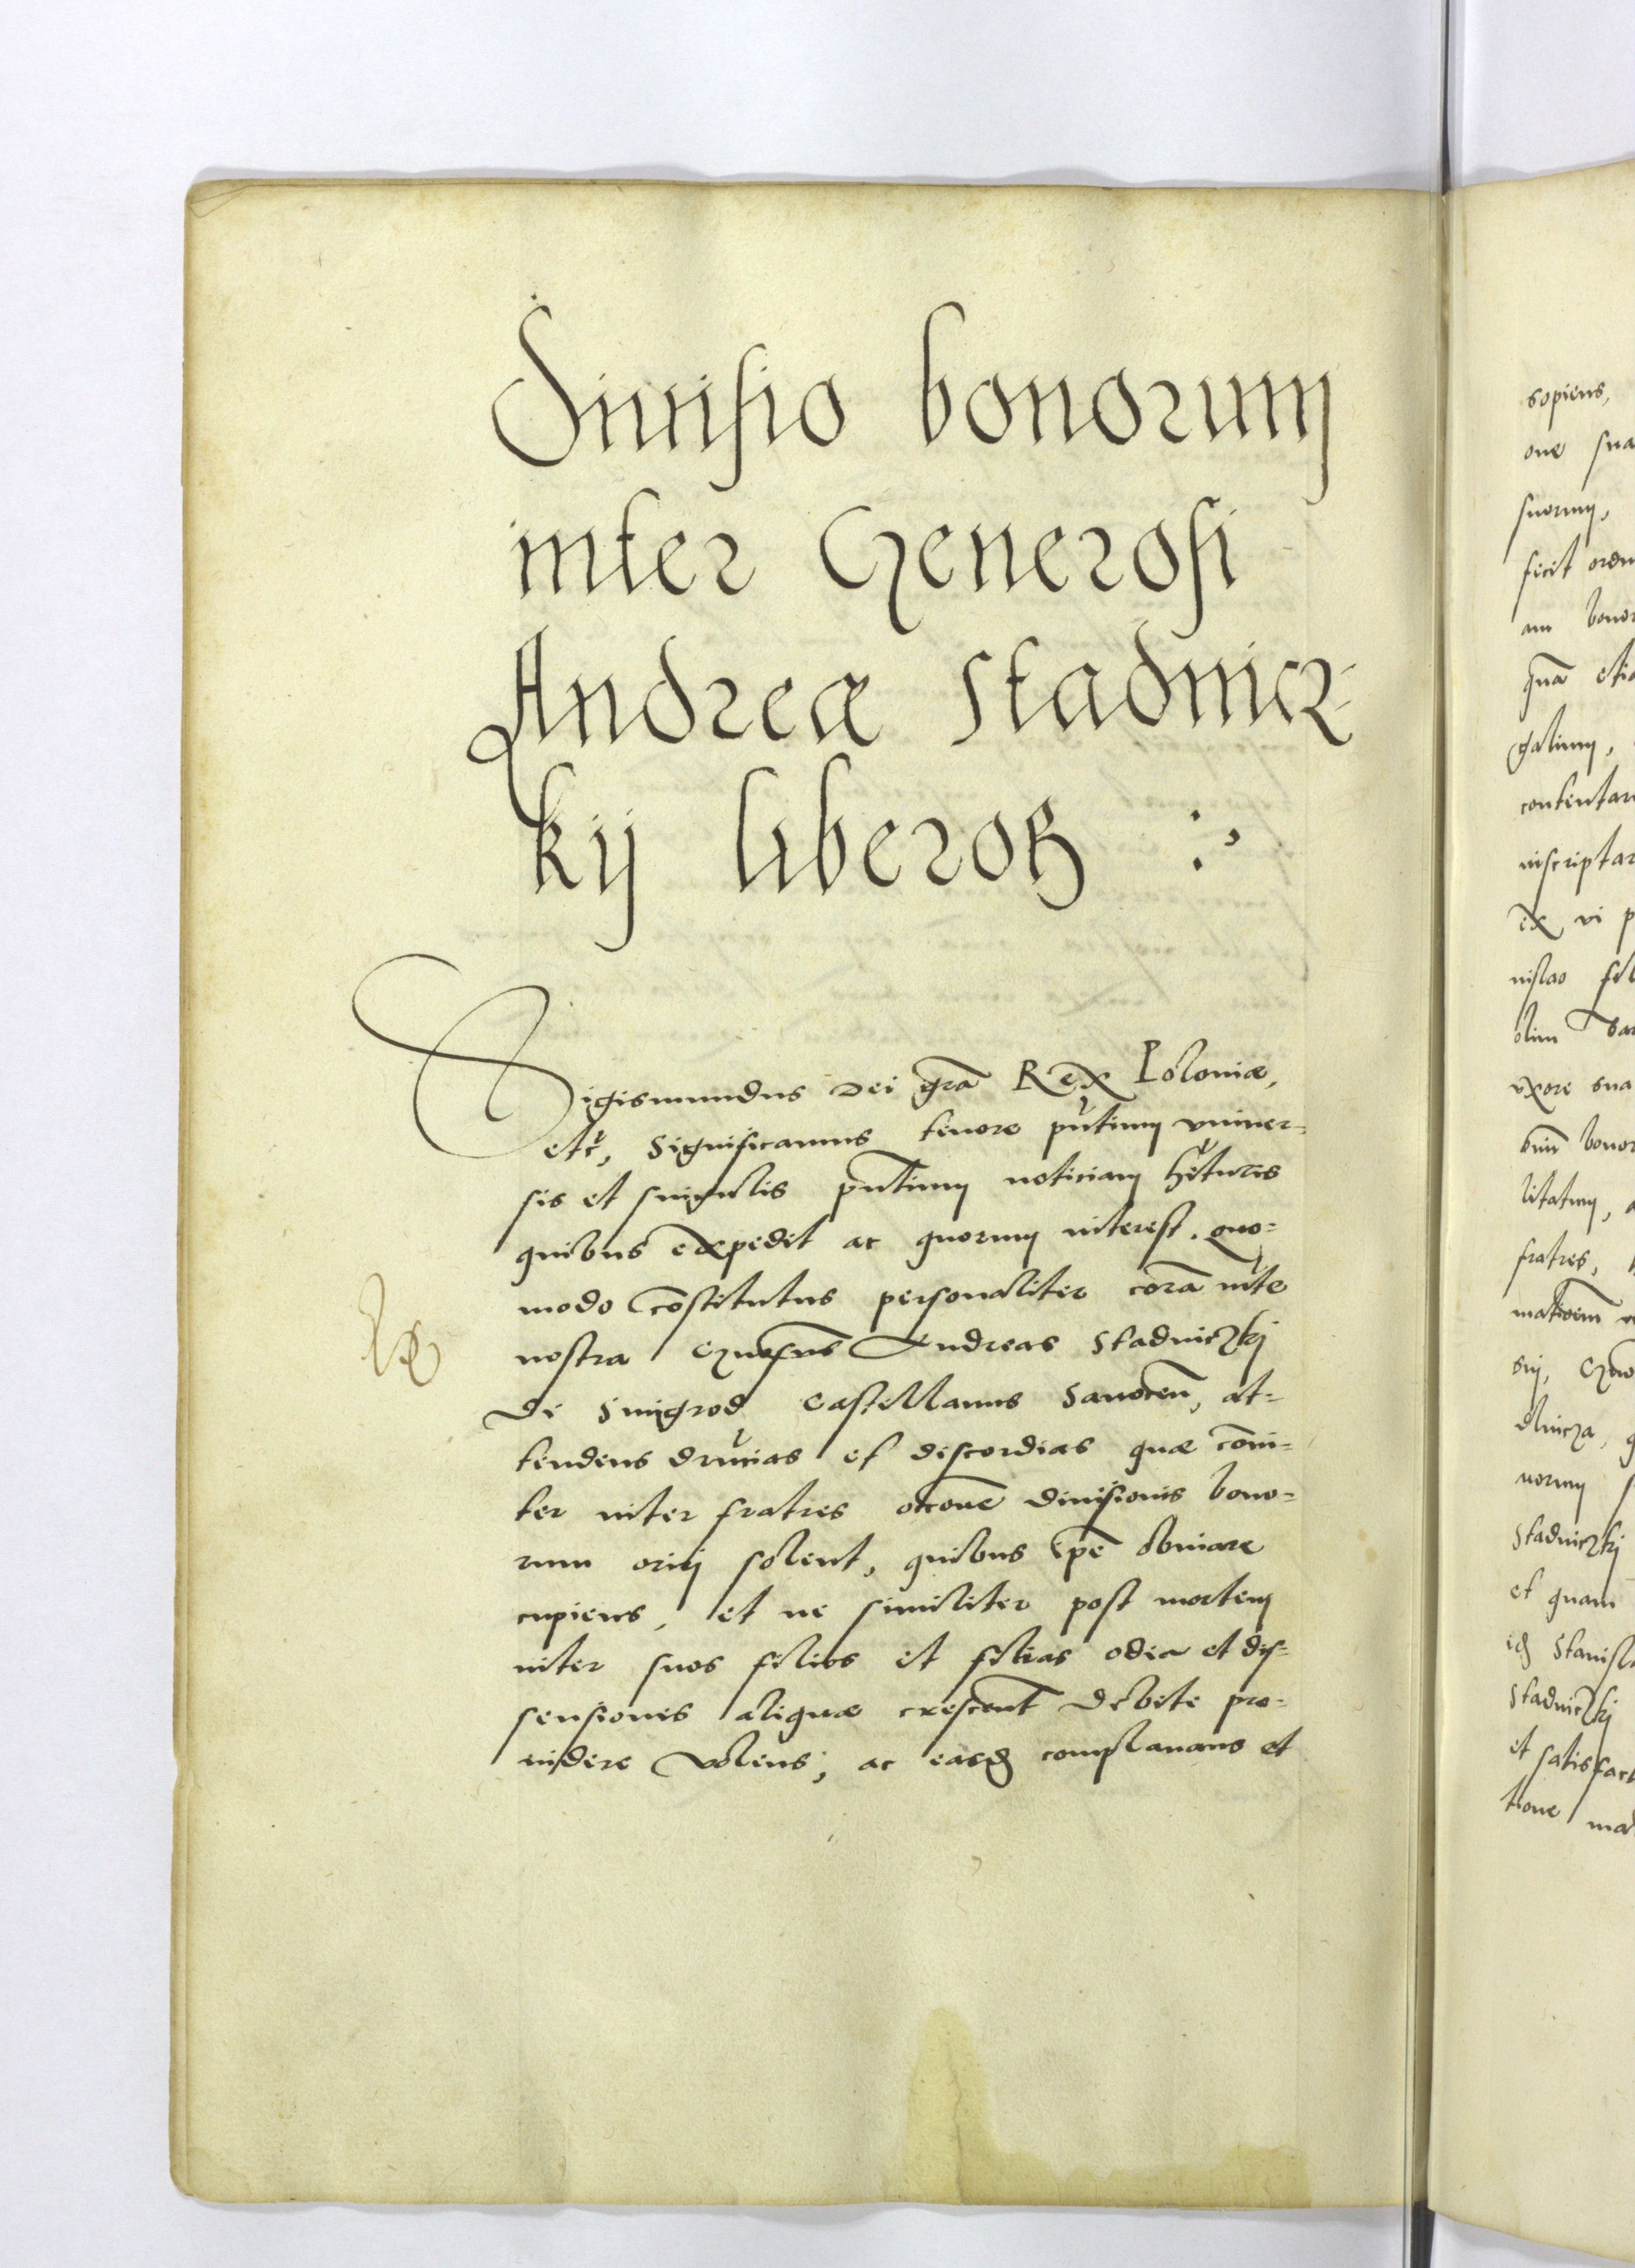 Diuisio bonorum
inter Generosi
Andreæ Stadnicz-
kij liberoꝝ :
Sigismundus Dei gr̃a Rex Poloniæ,
etc̃, Significamus tenore pñtium vniuer=
sis et singulis pñtium noticiam h̃ituris
quibus expedit ac quorum interest. quo=
modo constitutus personaliter corã mte
nostra Gn̄osus Andreas Stadniczkj
de Smigrod Castellanus Sanocen̄, at=
tendens et discordias quæ cõmi=
ter inter fratres occone diuisionis bono=
rum oriri solent, quibus ip̄e obuiare
cupiens, et ne similiter post mortem
inter suos filios et filias odia et dis=
sensiones aliquæ crescant debite pro=
uidere volens, ac easdem complanans et
sopiens,
one sua
suorum,
fecit
am bonor
qua᷈ etia
galium,
contentar
inscriptar
ex vi p
nislao fil
olim
vxore sua
bonor
litatum,
fratres,
uorum
Stadniczkj
et quam
Stanisla
Stadniczkj
et satisfact
tione ma